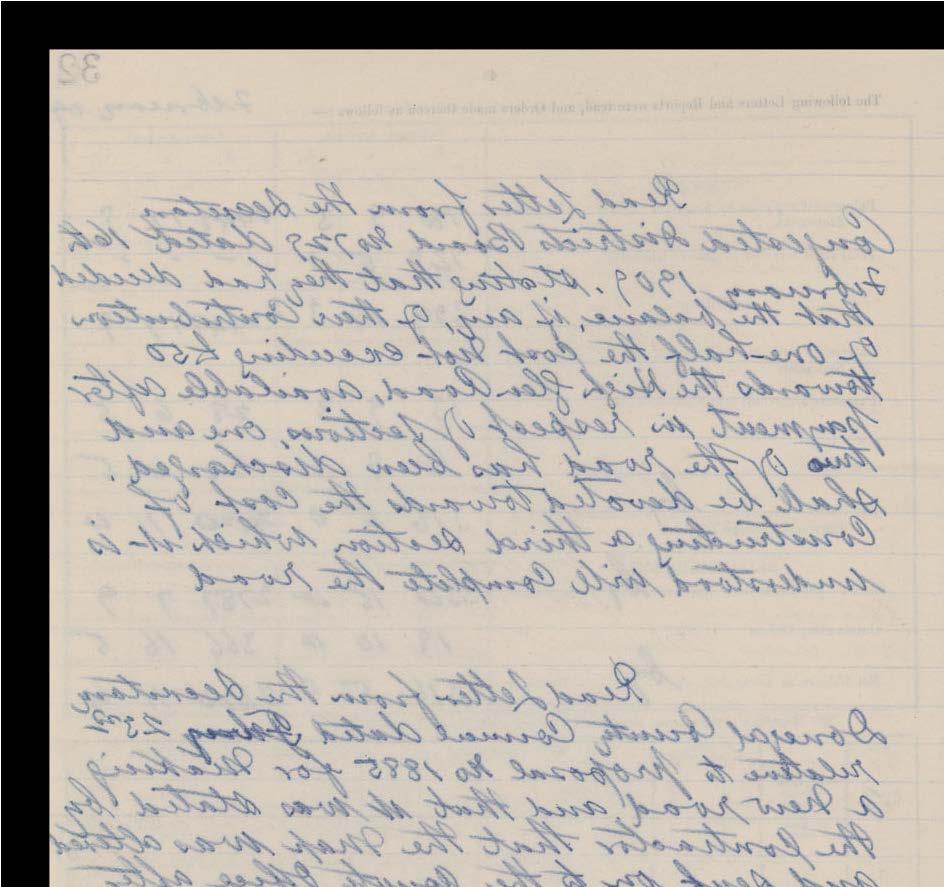 32
The following Letters and Reports were read, and Orders made thereon as follows :—
Read Letter from the Secretary
Congested Districts Board No 725 dated 16th
February 1909. stating that they had decided
that the balance, if any, of their Contribution
of one-half the cost not exceeding £50
towards the High Glen Road, available after
payment in respect of Sections, one and
two of the road has been discharged.
shall be devoted towards the Cost of
Constructing a third section, which it is
understood will Complete the road
Read Letter from the Secretary
Donegal County Council dated 23rd
relative to proposal No 1885 for Making
a New road, and that it was stated by
the Contractor that the Map was altered
and sent on to the County Office after